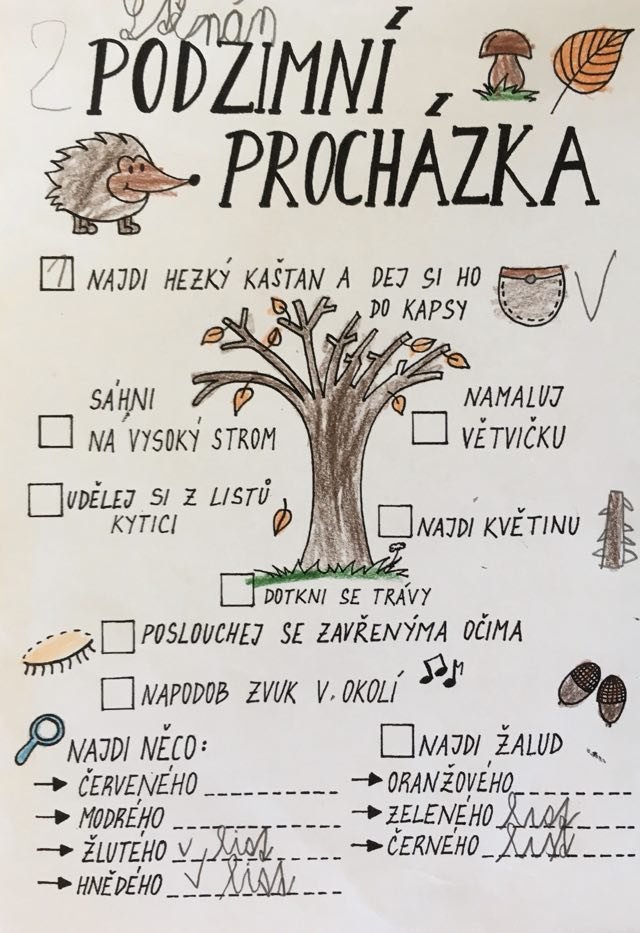 PODZIMNÍ
PROCHÁZKA
1 NAJDI HEZKÝ KAŠTAN A DEJ SI HO
DO KAPSY
SÁHNI
NA VYSOKÝ STROM
NAMALUJ
VĚTVIČKU
UDĚLEJ SI Z LISTŮ
KYTICI
NAJDI KVĚTINU
DOTKNI SE TRÁVY
POSLOUCHEJ SE ZAVŘENÝMA OČIMA
NAPODOB ZVUK V OKOLÍ
NAJDI NĚCO:
→ ČERVENÉHO
→ MODRÉHO
→ ŽLUTÉHO list
→ HNĚDÉHO list
NAJDI ŽALUD
→ ORANŽOVÉHO
→ ZELENÉHO list
→ ČERNÉHO list